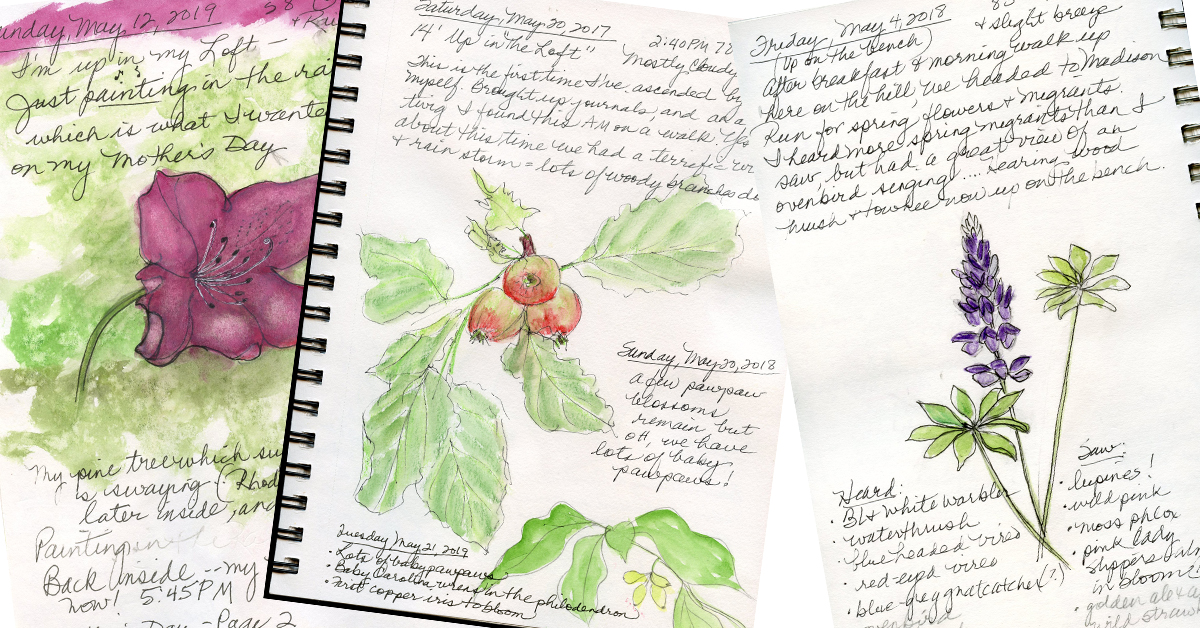 unday, May 12, 2019
I'm up in my Loft –
Just painting in the rai
which is what I wante
on my Mother's Day
My pine tree which su
is swaying – (Rhod
later inside, and
Painting
Back Inside -- my
now! 5:45 PM
Day – Page 2
Saturday, May 20, 2017
14' "Up in the Loft" 2:40 PM 72
Mostly Cloudy
This is the first time I've ascended by
myself. Brought up journals, and an a
twig I found this AM on a walk.
about this time we had a terrific w
& rain storm = lots of woody branches do
Sunday, May 20, 2018
a few pawpaw
blossoms
remain but
oh, we have
lots of baby
pawpaws!
Tuesday May 21, 2019
• Lots of baby pawpaws
• Baby Carolina wrens in the philodendron
• First copper iris to bloom
Friday, May 4, 2018
(Up on the bench) & slight breeze
After breakfast & morning walk up
here on the hill, we headed to Madison
Run for spring flowers & migrants.
I heard more spring migrants than I
saw, but had a great view of an
ovenbird singing! .... Hearing wood
thrush & towhee now up on the bench.
Heard:
• Bl & white warbler
• waterthrush
• blue headed vireo
• red-eyed vireo
• blue-grey gnatcatcher (?)
ovenbird,
Saw:
• lupines!
• wild pink
• moss phlox
• pink lady
slippers
in bloom
• golden alexa
wild straw